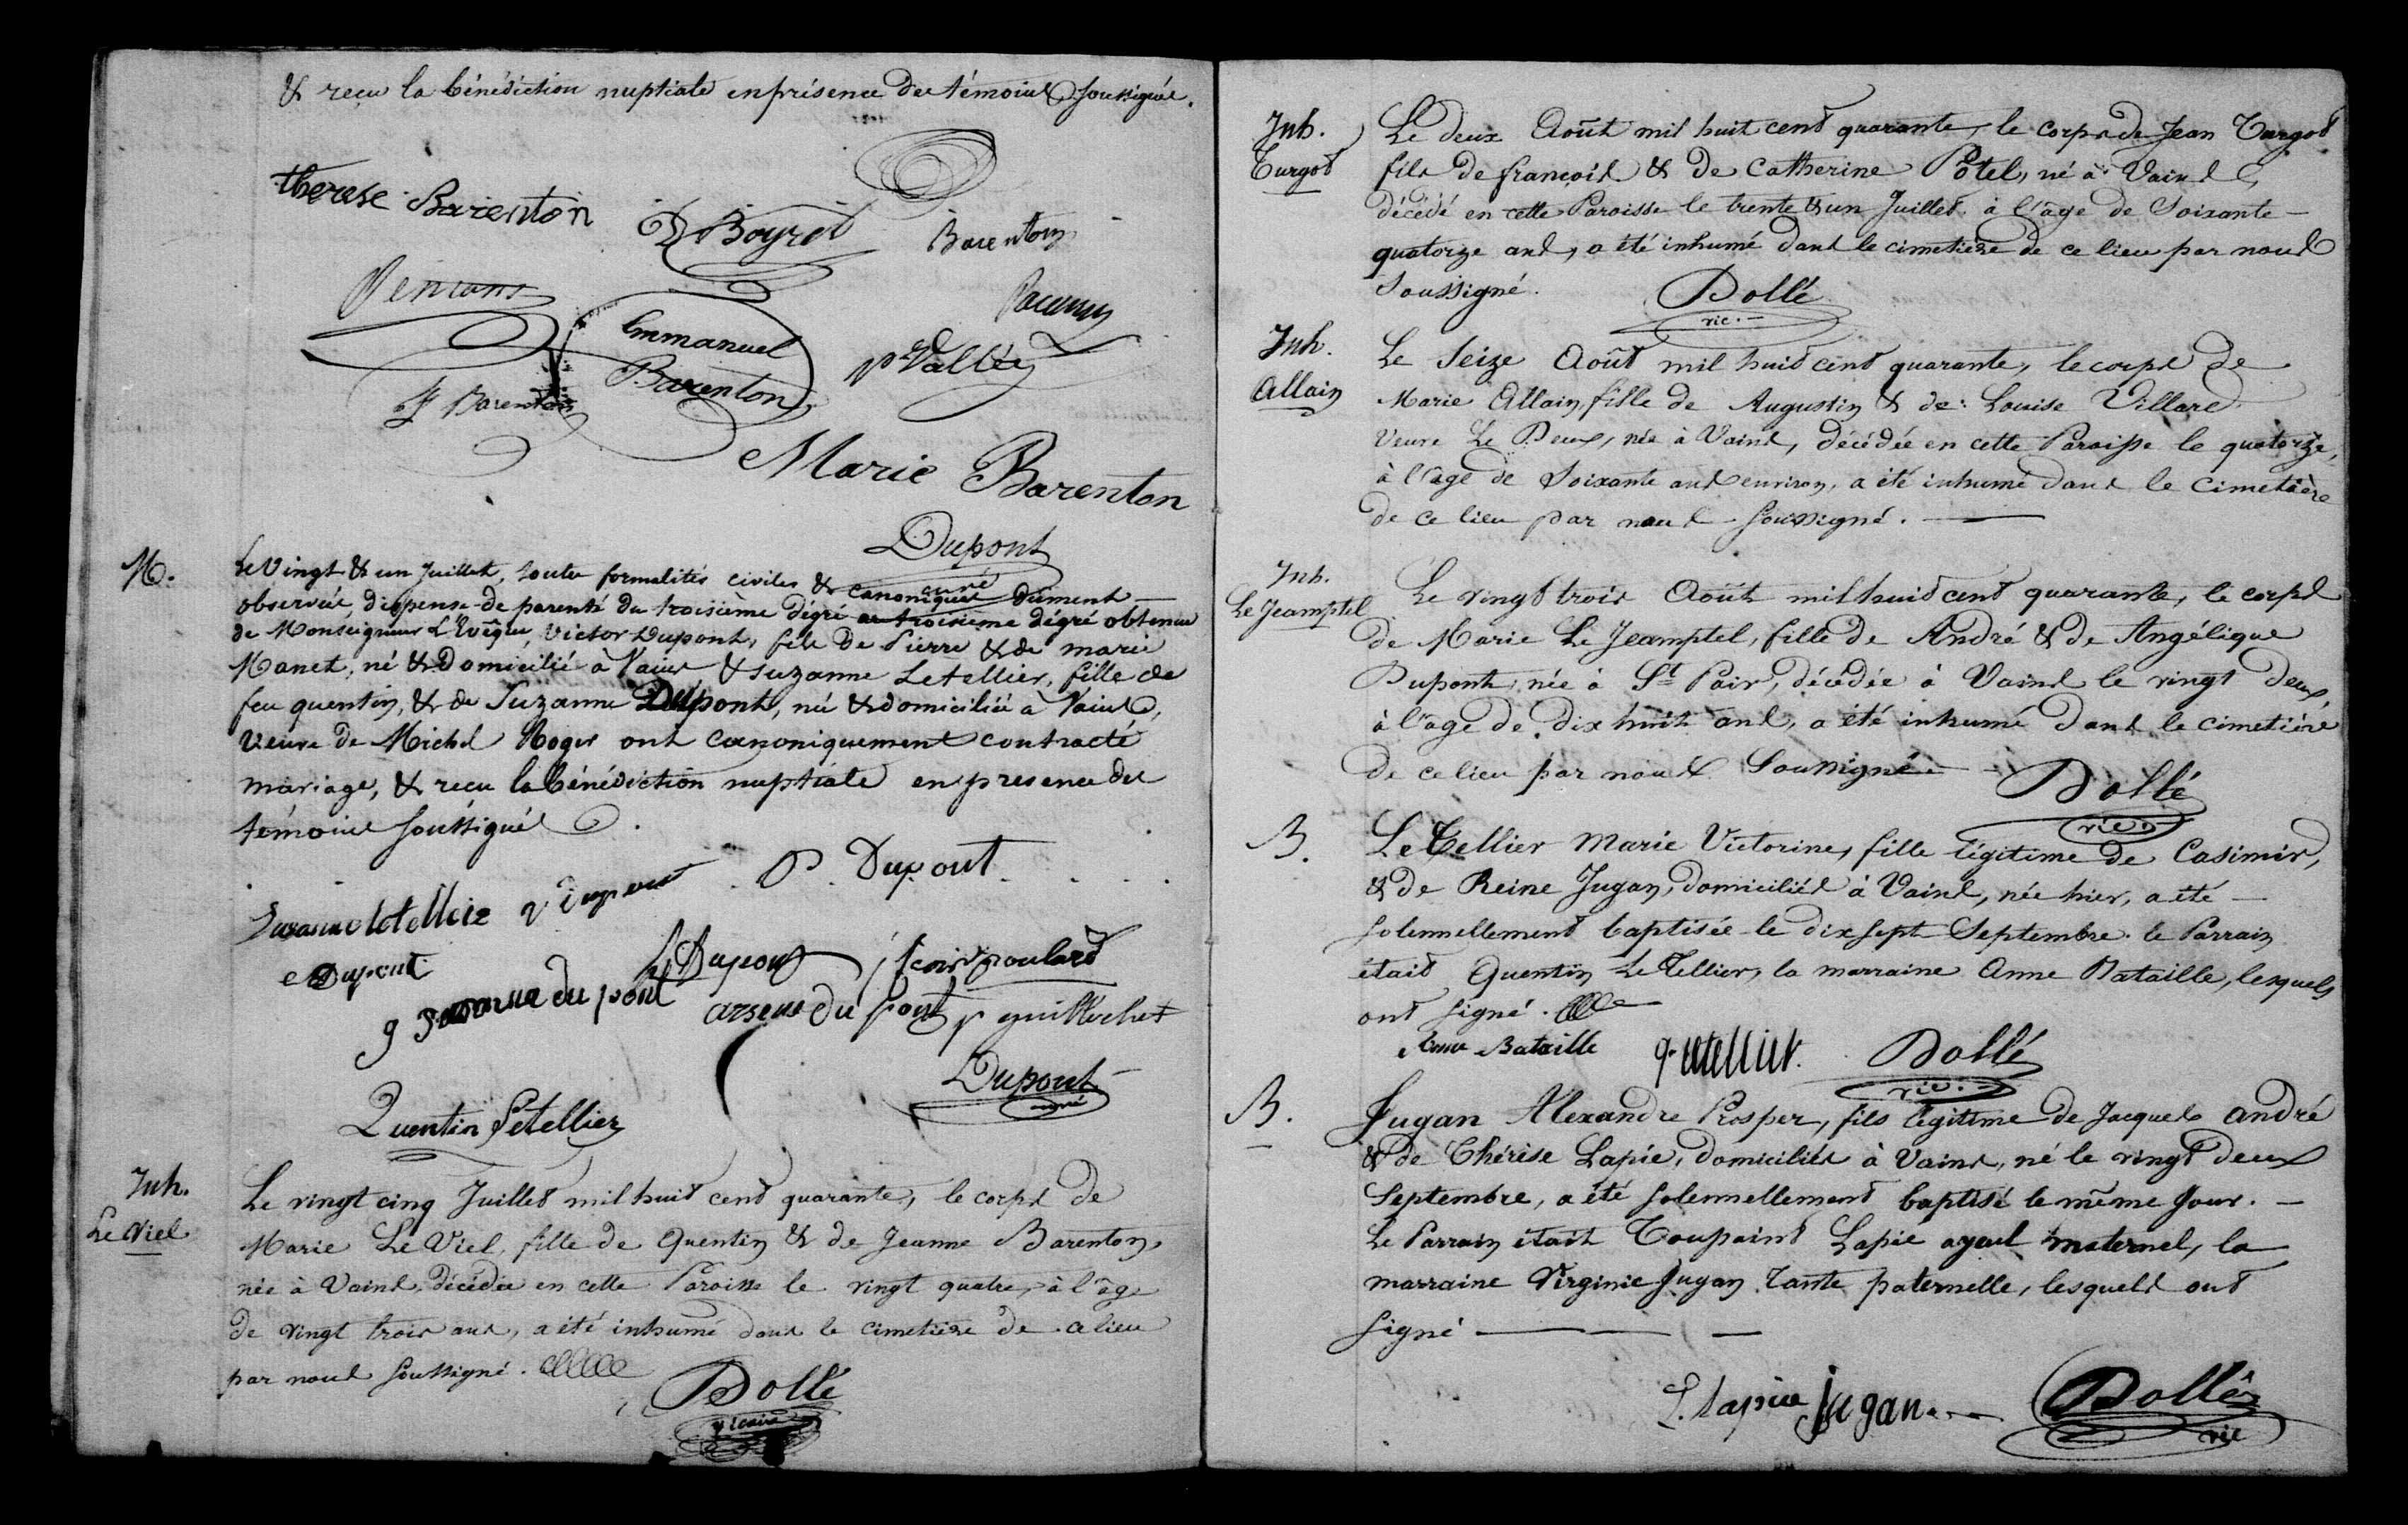 & reçu la bénédiction nuptiale en présence des témoins soussignés.
therese Barenton
D Boyrot
Barenton
Emmanuel
Barenton
J Barenton
Vallée
Marie Barenton
Dupont
curé
M.
Le Vingt & un Juillet, toutes formalités civiles & canoniques dument
observées, dispense de parenté du troisième dégré au troisième dégré obtenue
de Monseigneur L'Evêque, Victor Dupont, fils de Pierre & de marie
Manet, né & domicilié à Vains & suzanne Letellier, fille de
feu quentin, & de Suzanne Dupont, née & domiciliée à Vains,
Veuve de Michel Roger ont canoniquement contracté
mariage, & reçu la bénédiction nuptiale en presence des
témoins soussignés.
Susanne letellier v Dupont P. Dupont
Dupont
Dupont
poulard
du pont
arsene du pont
p guillochet
Dupont
curé
Quentin Letellier
Inh.
Le Viel
Le vingt cinq Juillet mil huit cent quarante, le corps de
Marie Le Viel, fille de Quentin & de Jeanne Barenton,
née à Vains, décédée en cette Paroisse le vingt quatre, à l'âge
de vingt trois ans, a été inhumé dans le cimetière de ce lieu
par nous soussigné.
Dollé
vicaire
Inh.
Turgot
Le deux Août mil huit cent quarante, le corps de Jean Turgot
fils de françois & de Catherine Potel, né à Vains,
décédé en cette Paroisse le trente & un Juillet à l'âge de Soixante
quatorze ans, a été inhumé dans le cimetière de ce lieu par nous
Soussigné.
Dollé
vic.
Inh.
Allain
Le Seize Août mil huit cent quarante, le corps de
Marie Allain, fille de Augustin & de Louise Villard
Veuve Le Deux, née à Vains, décédée en cette Paroisse le quatorze,
à l'âge de Soixante ans environ, a été inhumé dans le Cimetière
de ce lieu par nous Soussigné.
Inh.
Le Jeamptel
Le vingt trois Août mil huit cent quarante, le corps
de Marie Le Jeamptel, fille de André & de Angélique
Dupont, née à St Pair, décédée à Vains le vingt deux,
à l'âge de dix huit ans, a été inhumé dans le cimetière
de ce lieu par nous Soussigné.
Dollé
vic.
B.
Le Tellier Marie Victorine, fille légitime de Casimir,
& de Reine Jugan, domiciliés à Vains, née hier, a été
solennellement baptisée le dix sept Septembre. le Parrain
était Quentin Le Tellier, la marraine Anne Bataille, lesquels
ont signé.
Anne Bataille
q. letellier.
Dollé
vic.
B.
Jugan Alexandre Prosper, fils légitime de Jacques André
& de Thérèse Lapie, domiciliés à Vains, né le vingt deux
Septembre, a été solennellement baptisé le même jour.
Le Parrain était Toussaint Lapie ayeul maternel, la
marraine Virginie Jugan tante paternelle, lesquels ont
signé
Lapie
Jugan
Dollé
vic